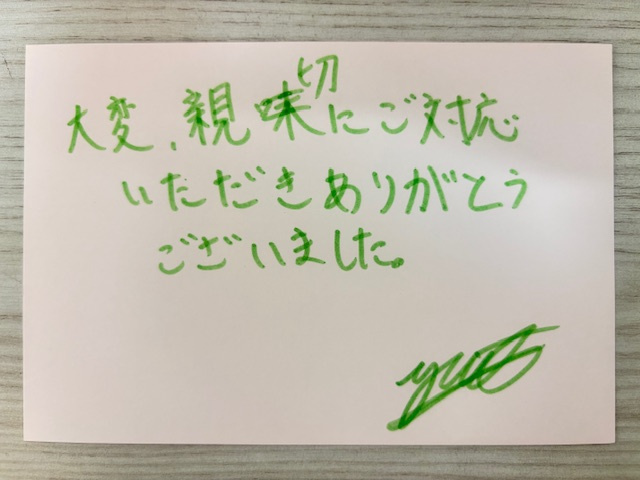 大変、親切にご対応
いただきありがとう
ございました。